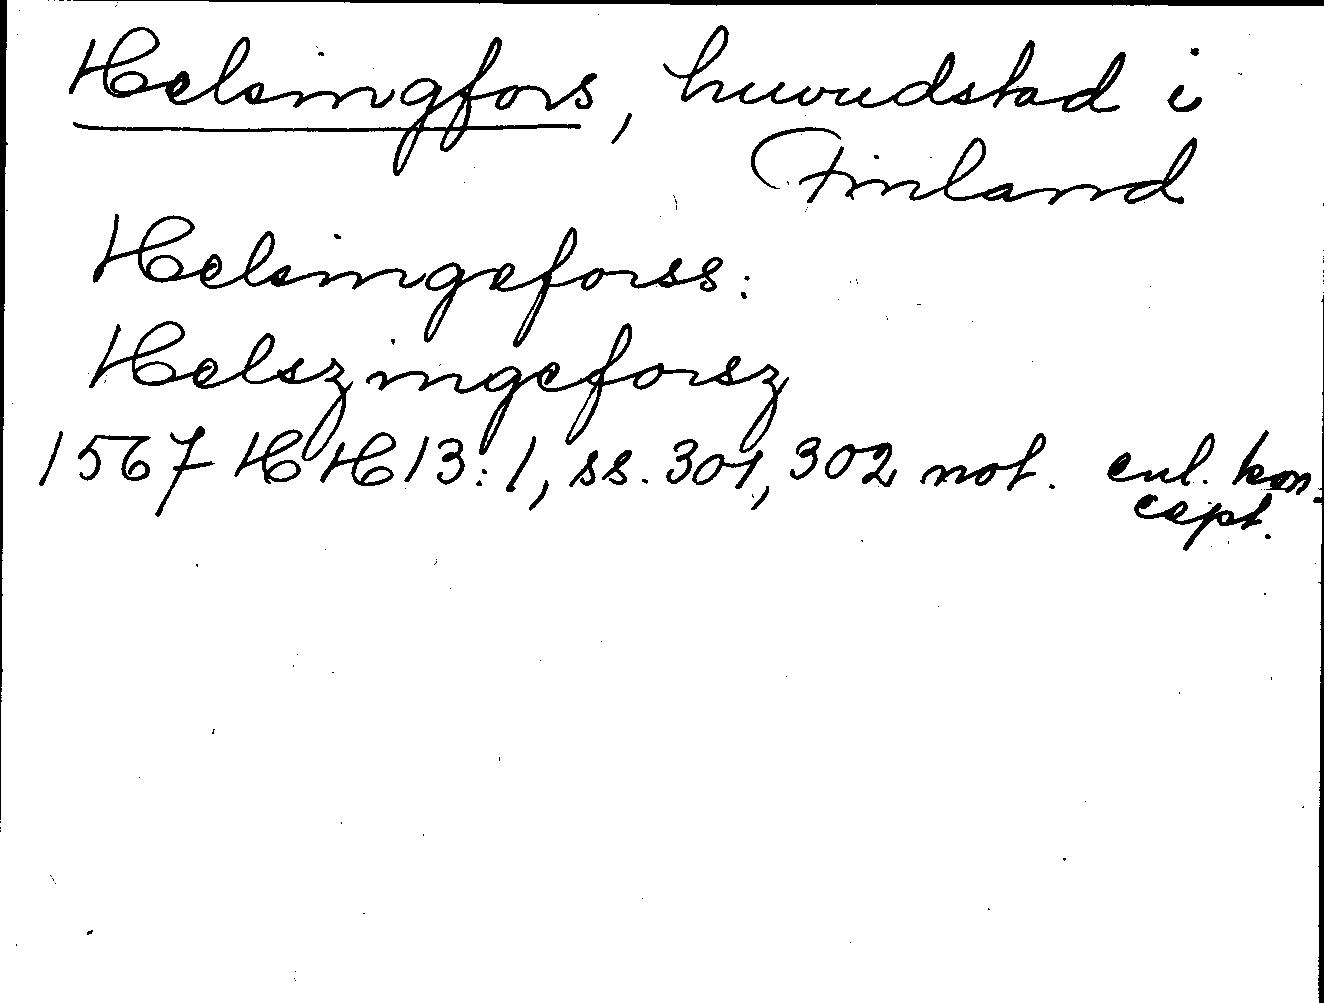 Helsingfors, huvudstad i
Finland
Helsingeforss:
Helszingeforsz
1567 HH 13:1, ss. 301, 302 not. enl. kon-
cept.